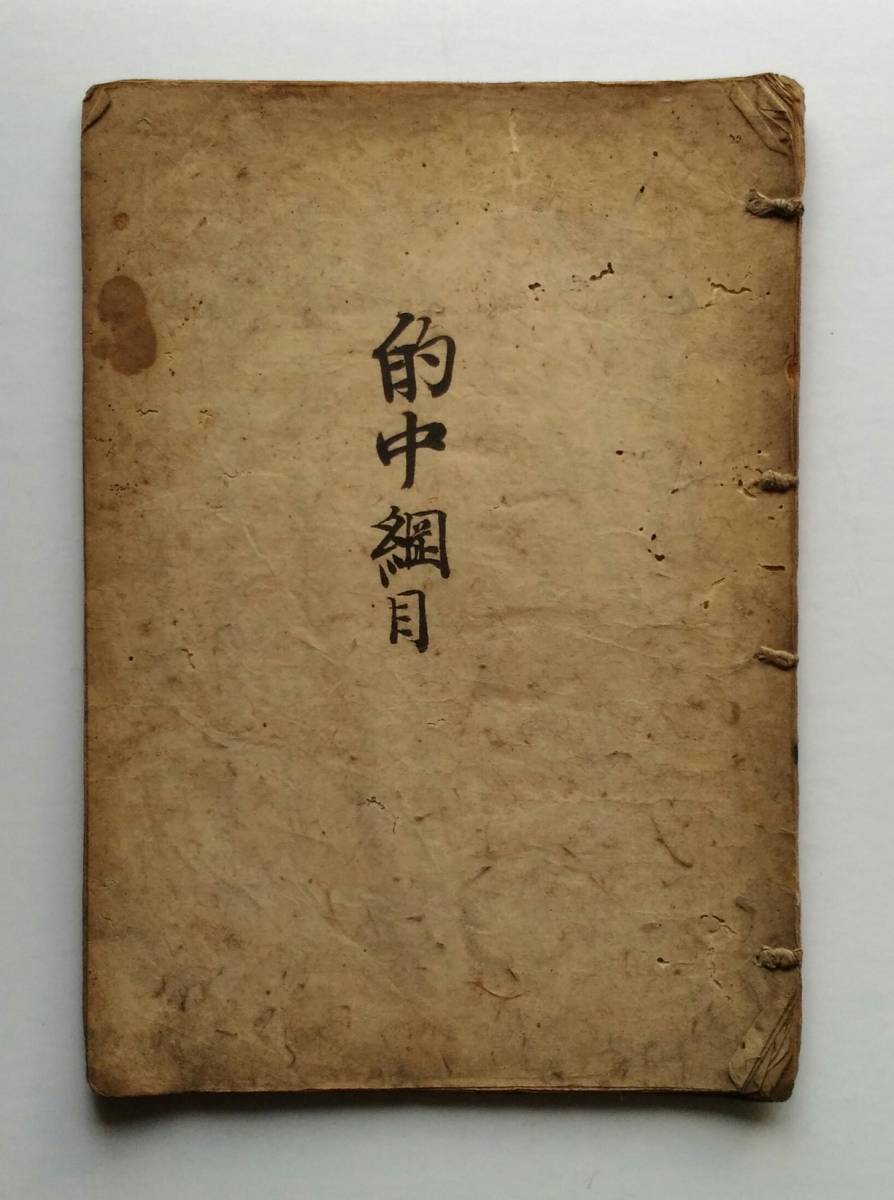 的中綱目